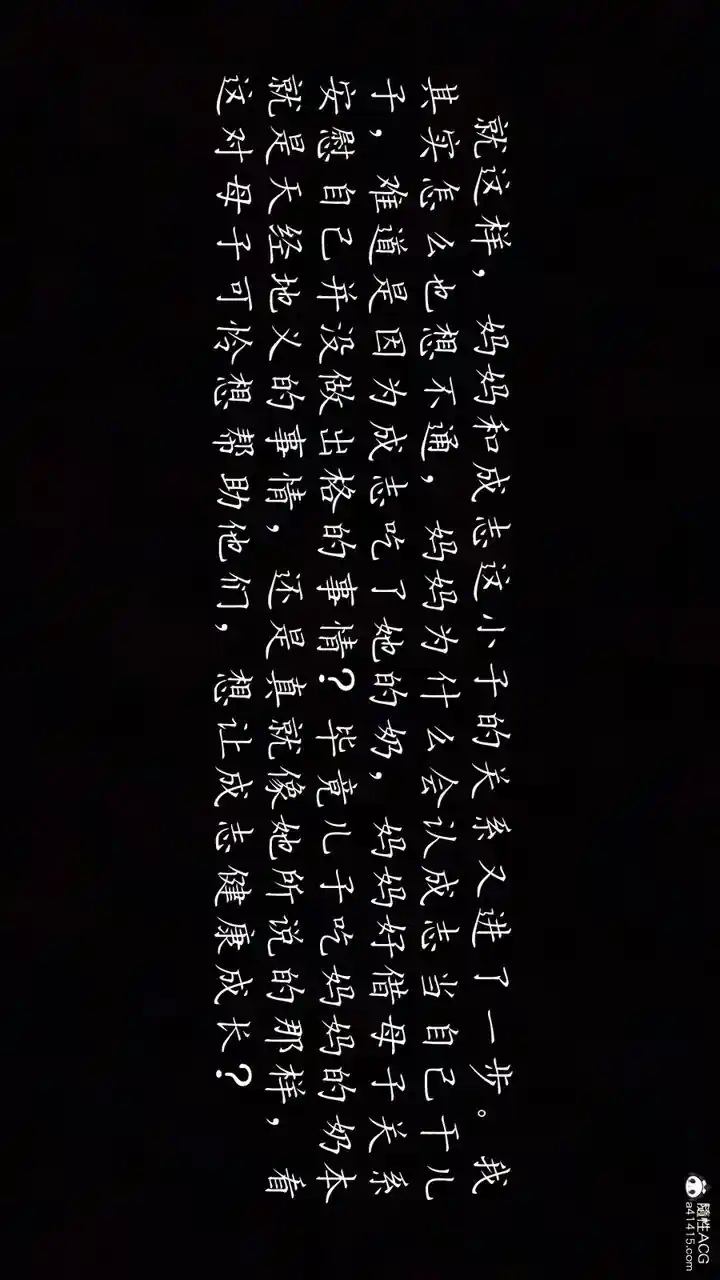 就这样，妈妈和成志这小子的关系又进了一步。我
其实怎么也想不通，妈妈为什么会认成志当自己干儿
子，难道是因为成志吃了她的奶，妈妈好借母子关系
安慰自己并没做出格的事情？毕竟儿子吃妈妈的奶本
就是天经地义的事情，还是真就像她所说的那样，看
这对母子可怜想帮助他们，想让成志健康成长？
隨性ACG
a41415.com